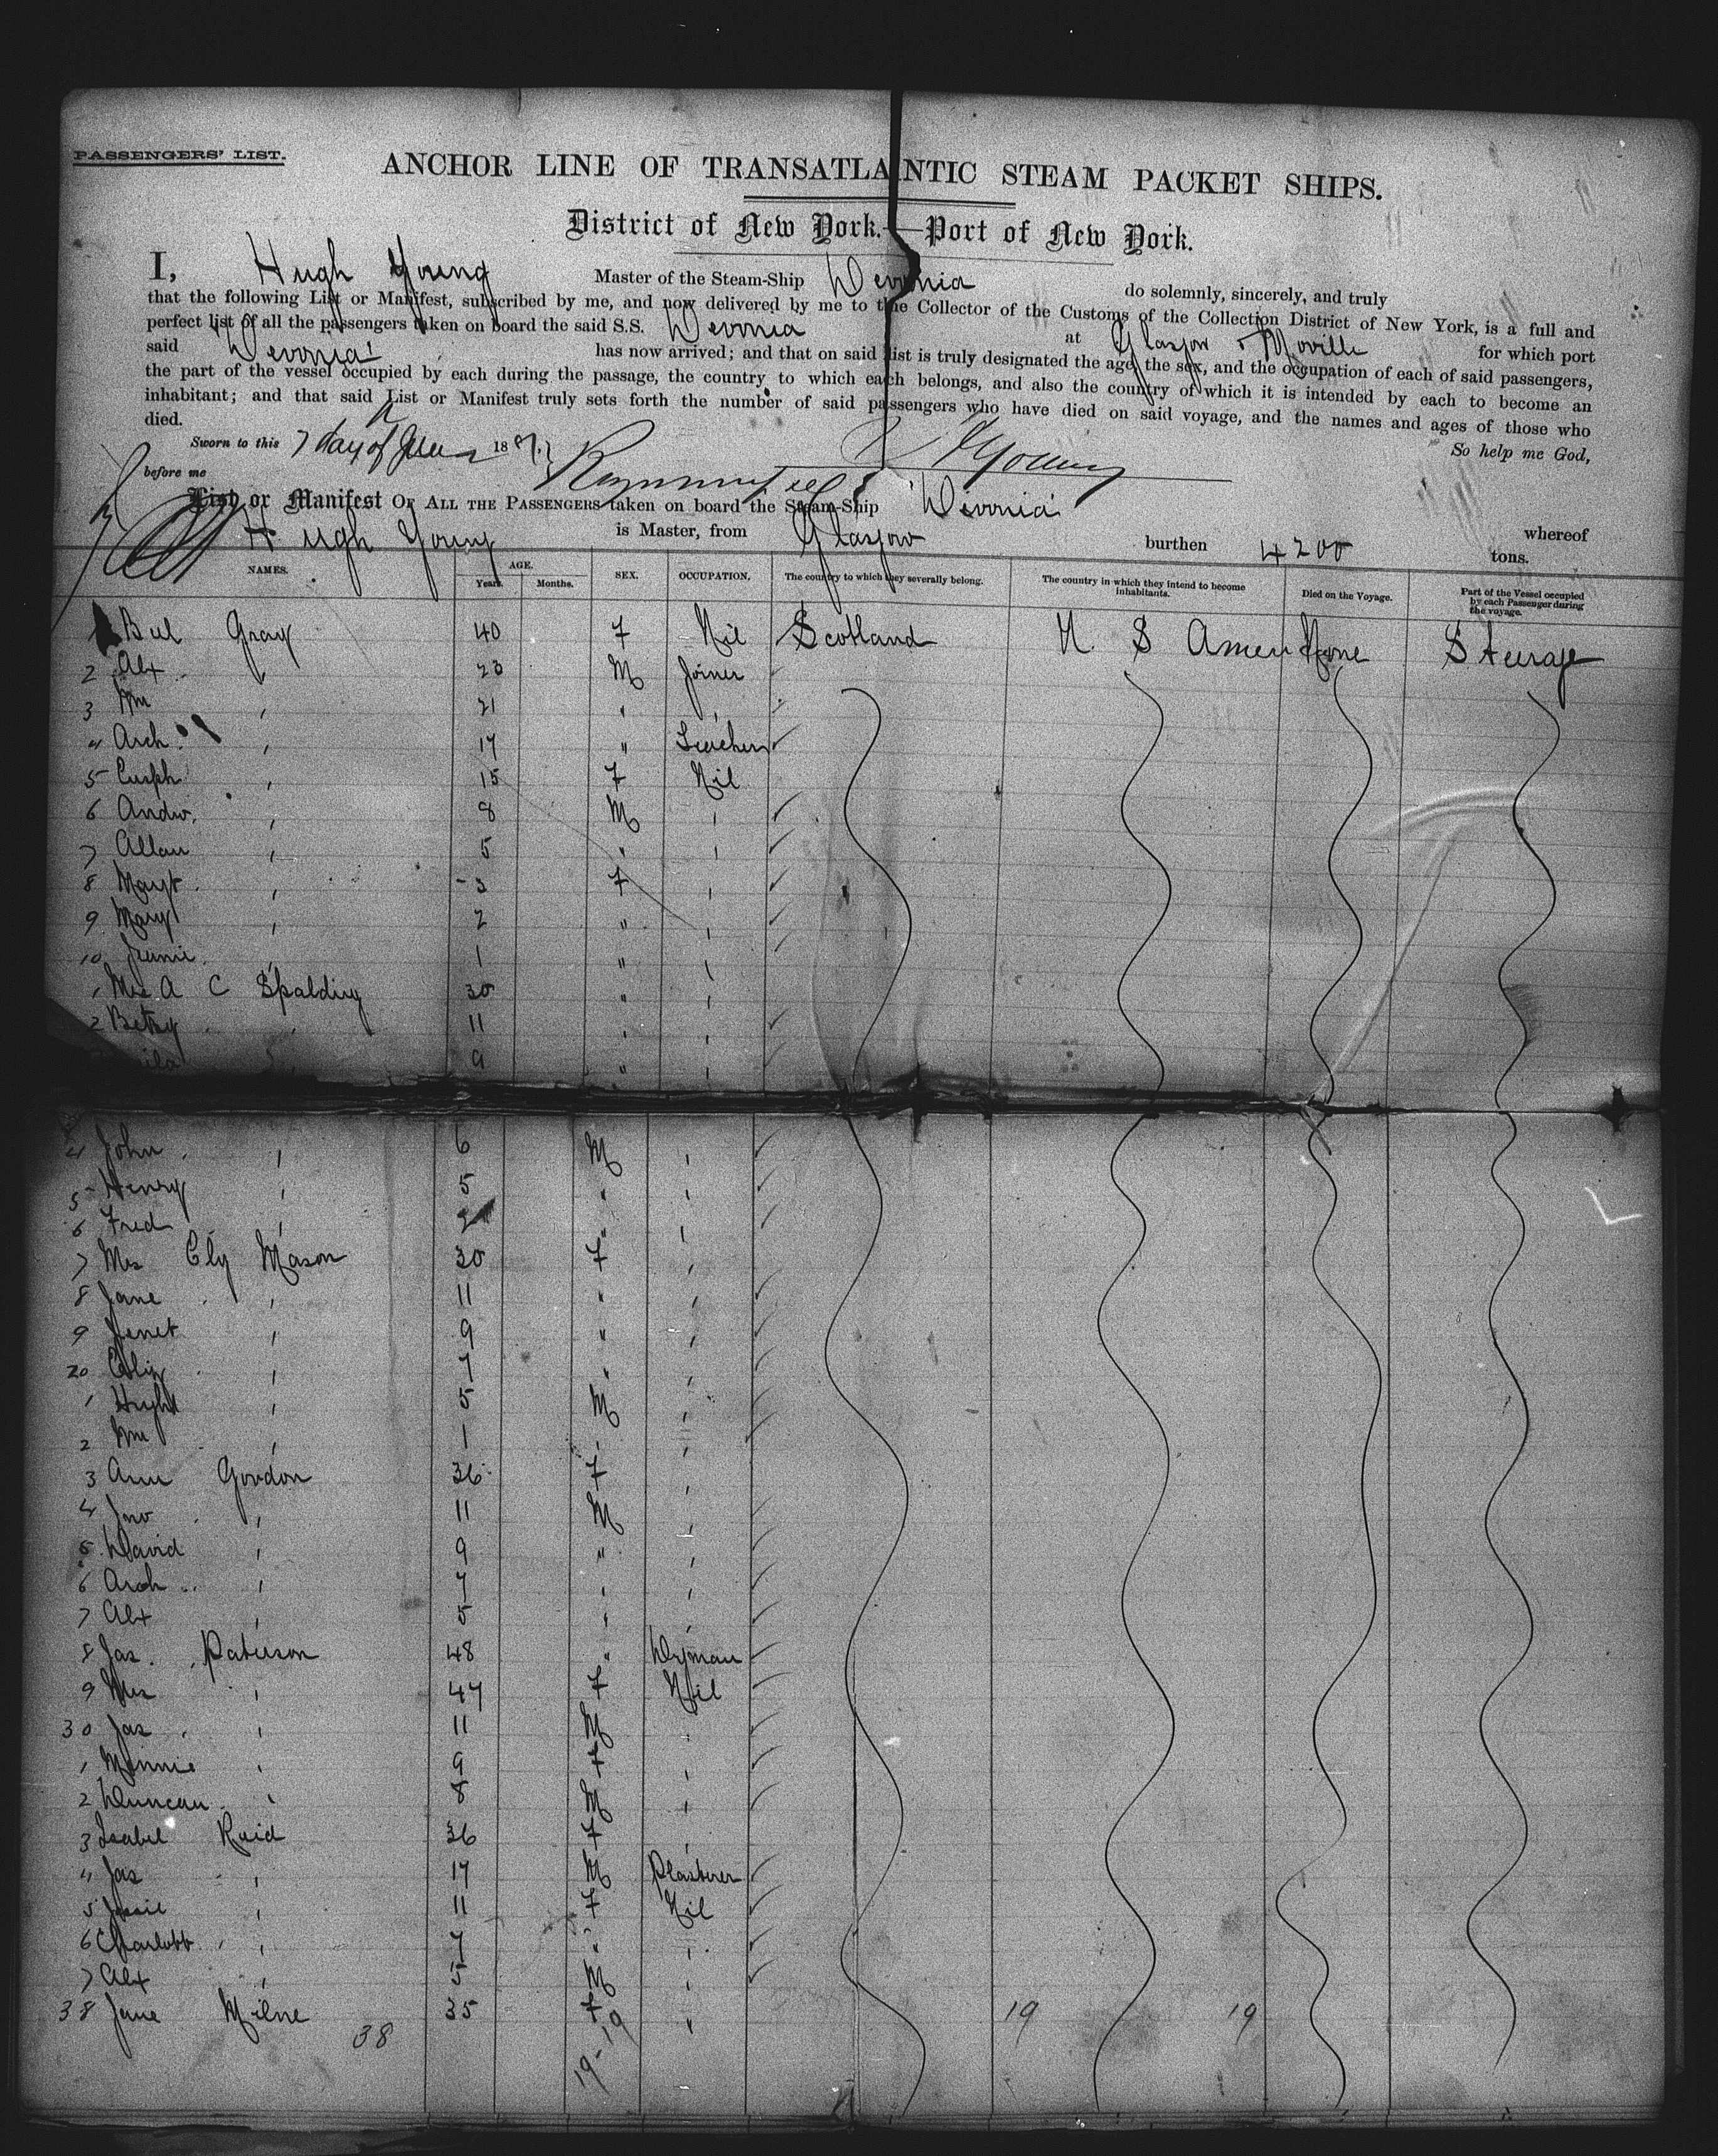 PASSENGERS' LIST.
ANCHOR LINE OF TRANSATLANTIC STEAM PACKET SHIPS.
District of New York.—Port of New York.
I, Hugh Young Master of the Steam-Ship Devonia do solemnly, sincerely, and truly
that the following List or Manifest, subscribed by me, and now delivered by me to the Collector of the Customs of the Collection District of New York, is a full and
perfect list of all the passengers taken on board the said S.S. Devonia at Glasgow & Moville for which port
said "Devonia" has now arrived; and that on said list is truly designated the age, the sex, and the occupation of each of said passengers,
the part of the vessel occupied by each during the passage, the country to which each belongs, and also the country of which it is intended by each to become an
inhabitant; and that said List or Manifest truly sets forth the number of said passengers who have died on said voyage, and the names and ages of those who
died.
So help me God,
Sworn to this 7 day of 188
before me
H Young
List or Manifest OF ALL THE PASSENGERS taken on board the Steam-Ship "Devonia" whereof
Hugh Young is Master, from Glasgow burthen 4200 tons.
NAMES. AGE. Years. Months. SEX. OCCUPATION. The country to which they severally belong. The country in which they intend to become inhabitants. Died on the Voyage. Part of the Vessel occupied by each Passenger during the voyage.
Gray 40 F Nil Scotland U. S Amer None Steerage
2 Alx " 23 M Joiner
3 Wm " 21 " "
4 Arch. " 17 "
5 " 15 F Nil
6 Andw. " 8 M "
7 Allan " 5 " "
8 Margt. " 3 F "
9 Mary " 2 " "
10 Jeanie. " 1 " "
1 Mrs A C Spalding 30 " "
2 Betsy " 11 " "
" 9 " "
4 John " 6 M "
5 Henry " 5 " "
6 Fred " 2 " "
7 Mrs Mason 30 F "
8 Jane " 11 " "
9 Jenet " 9 " "
20 " 7 " "
1 Hugh " 5 M "
2 Wm " 1 " "
3 Ann Gordon 36 F "
4 Jno " 11 M "
5 David " 9 " "
6 Arch " 7 " "
7 Alx " 5 " "
8 Jas. Paterson 48 "
9 Mrs " 47 F Nil
30 Jas " 11 M "
1 Minnie " 9 F "
2 Duncan " 8 M "
3 Isabel Reid 36 F "
4 Jas " 17 M Plasterer
5 Jessie " 11 F Nil
6 Charlott " 7 " "
7 Alx " 5 M "
38 Jane Milne 35 F "
38 19-19 19 19